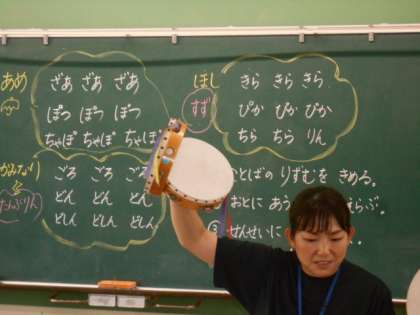 あめ
ざあ ざあ ざあ
ぽつ ぽつ ぽつ
ちゃぽ ちゃぽ ちゃぽ
ほし
すず
きら きら きら
ぴか ぴか ぴか
ちら ちら りん
かみなり
たんぶりん
ごろ ごろ ごろ
どん どん どん
どしん どしん どしん
とばの りずむを きめる。
おとに あう
えらぶ。
③ せんせいに